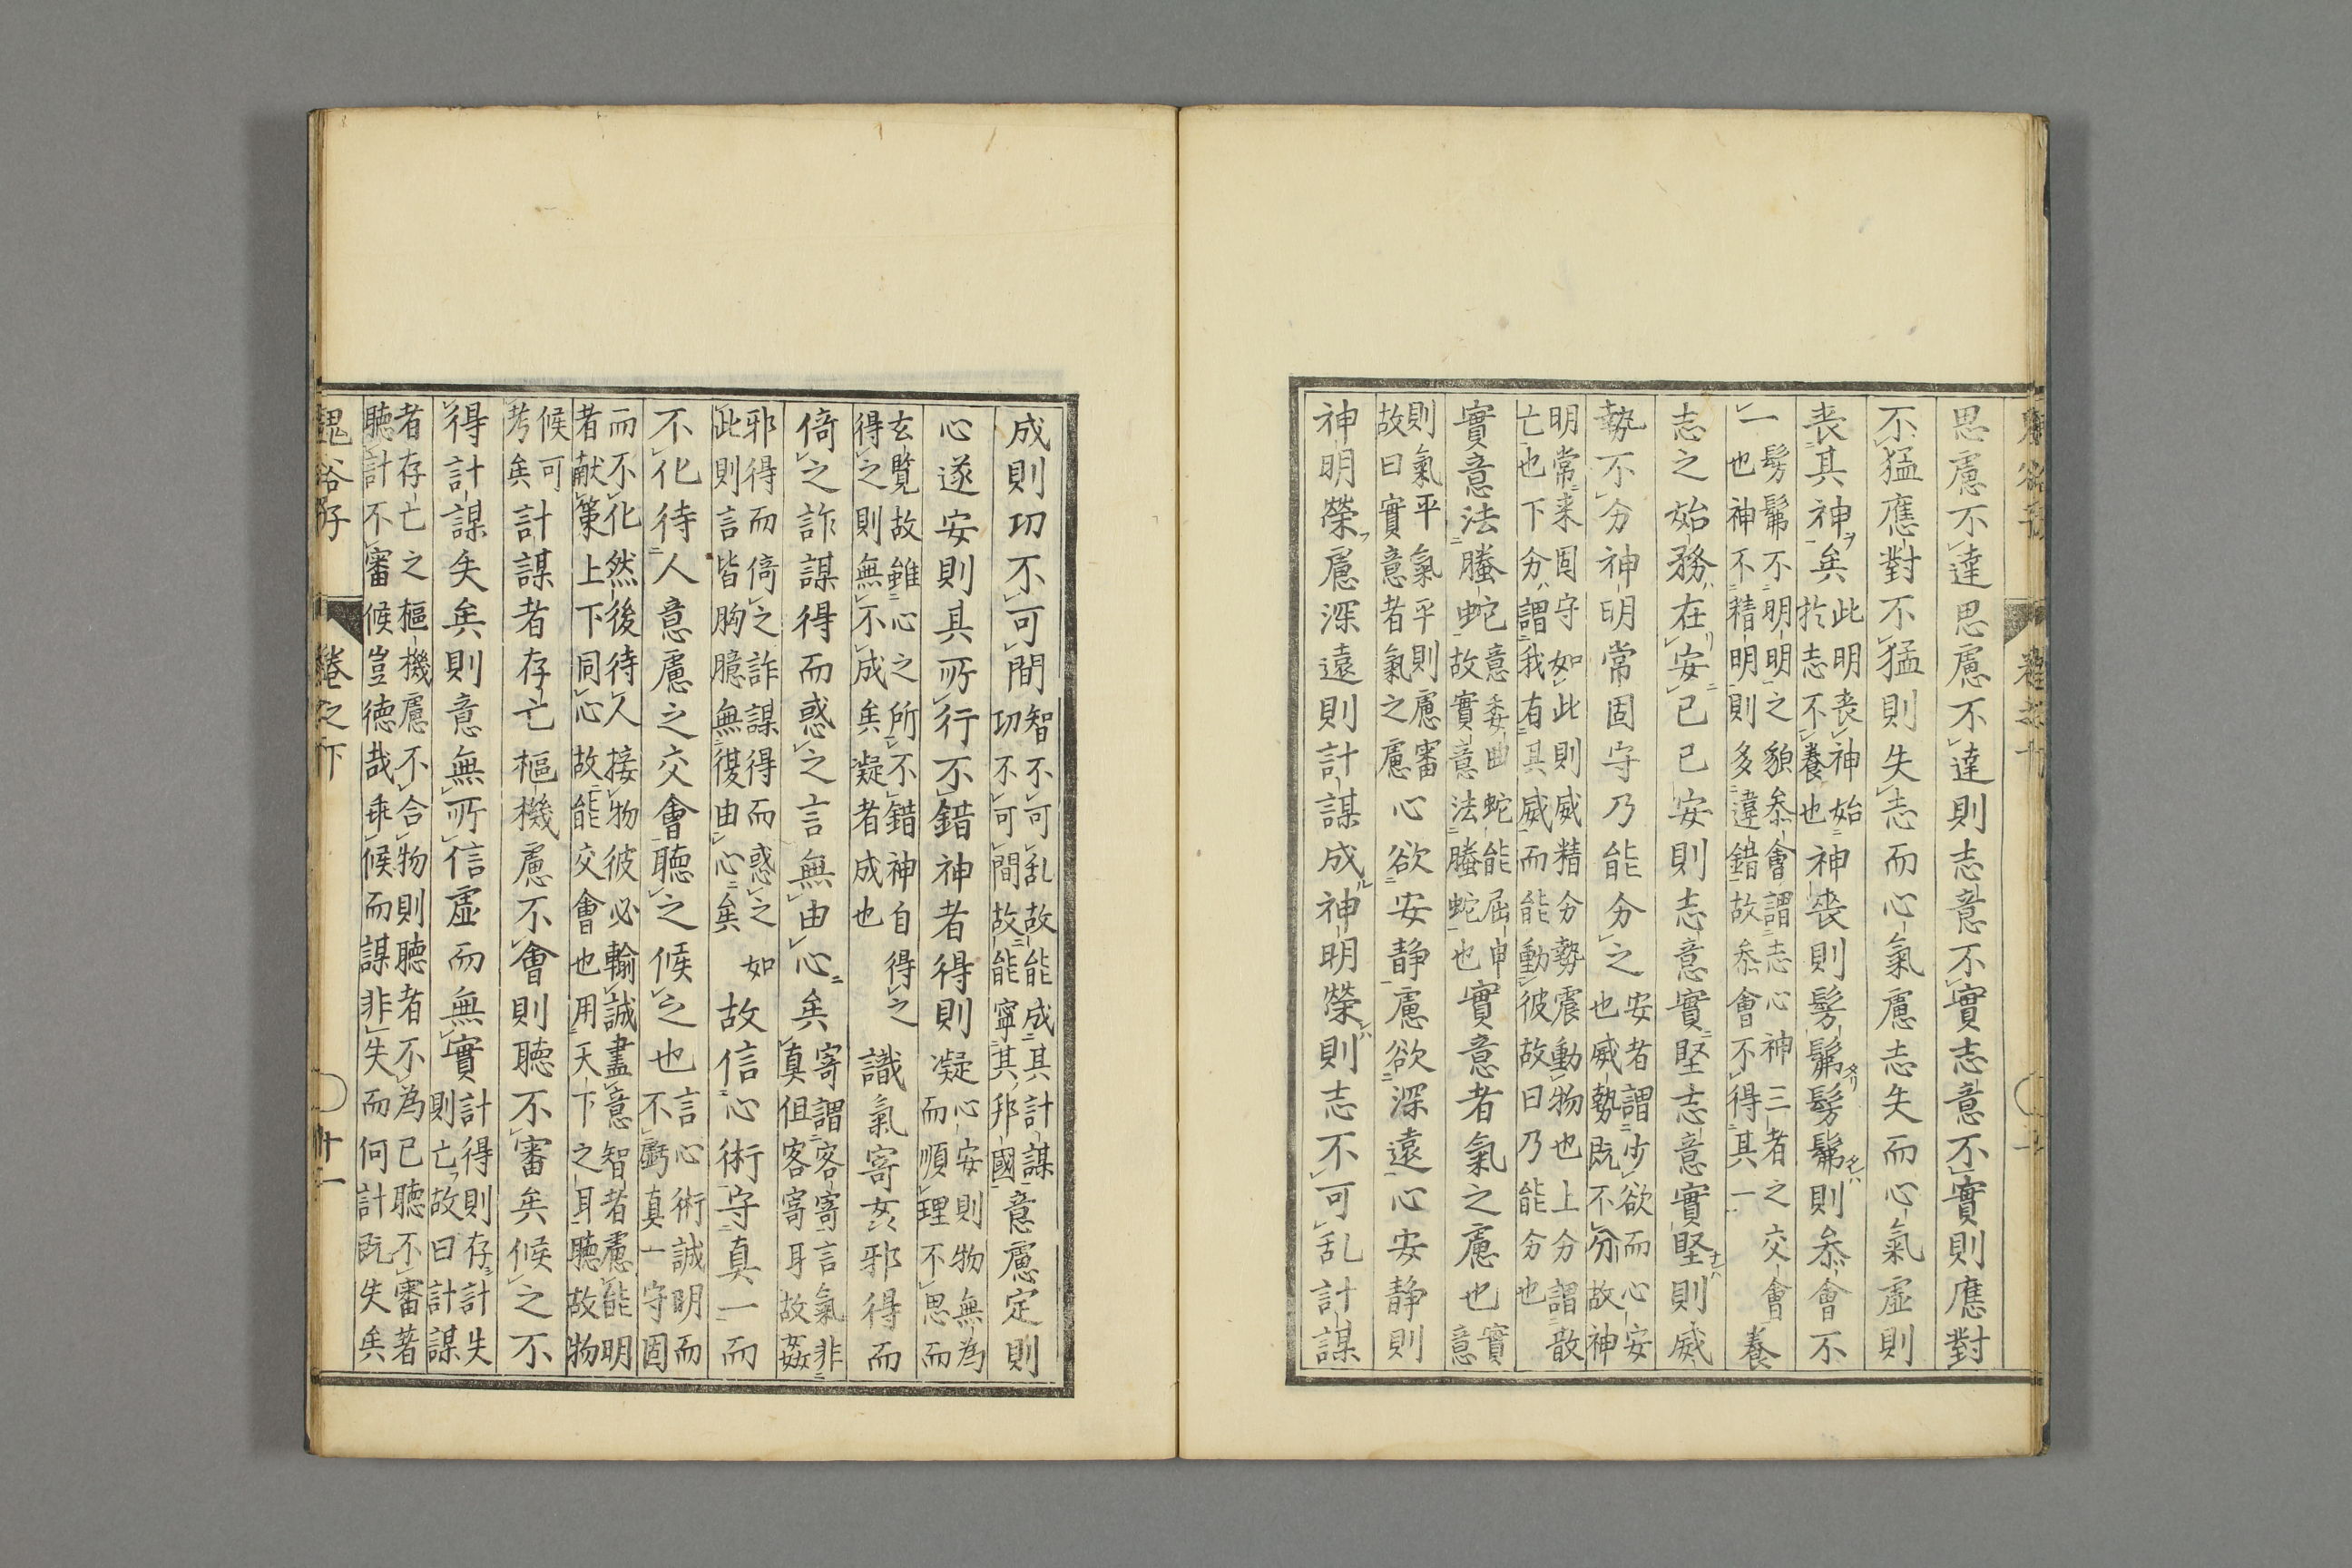 思慮不達思慮不達則志意不實志意不實則應對
不猛應對不猛則失志而心氣慮志失而心氣虛則
喪其神矣此明喪神始於志不養也神喪則髣髴髣髴則叅會不
一髣髴不明明之貌叅會謂志心神三者之交會也神不精明則多違錯故叅會不得其一養
志之始務在安己己安則志意實堅志意實堅則威
勢不分神明常固守乃能分之安者謂少欲而心安也威勢既不分故神
明常来固守如此則威精分勢震動物也上分謂散亡也下分謂我有其威而能動彼故曰乃能分也
實意法螣蛇意委曲蛇能屈申故實意法螣蛇也實意者氣之慮也實意
則氣平氣平則慮審故曰實意者氣之慮心欲安静慮欲深遠心安静則
神明榮慮深遠則計謀成神明榮則志不可乱計謀
成則功不可間智不可乱故能成其計謀功不可間故能寧其邦國意慮定則
心遂安則其所行不錯神者得則凝心安則物無為而順理不思而
玄覧故雖心之所不錯神自得之得之則無不成矣凝者成也識氣寄姦邪得而
倚之詐謀得而惑之言無由心矣寄謂客寄言氣非真但客寄耳故姦
邪得而倚之詐謀得而惑之如此則言皆胸臆無復由心矣故信心術守真一而
不化待人意慮之交會聽之候之也言心術誠明而不虧真一守固
而不化然後待人接物彼必輸誠盡意智者慮能明者献策上下同心故能交會也用天下之耳聽故物
候可考矣計謀者存亡樞機慮不會則聽不審矣候之不
得計謀失矣則意無所信虛而無實計得則存計失則亡故曰計謀
者存亡之樞機慮不合物則聽者不為己聽不審著聽計不審候豈徳哉乖候而謀非失而何計既失矣
鬼谷子 卷之下 十一